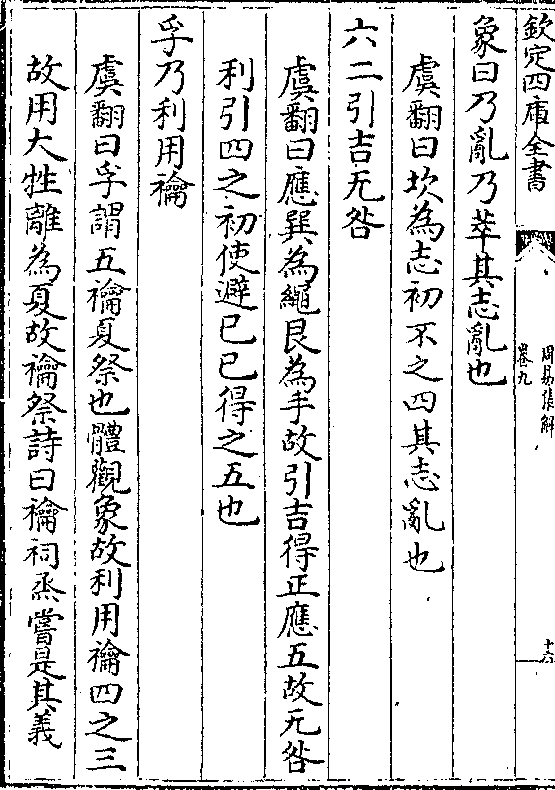 欽定四庫全書
周易集解
卷九
十六
象曰乃亂乃萃其志亂也
虞翻曰坎為志初不之四其志亂也
六二引吉无咎
虞翻曰應巽為繩艮為手故引吉得正應五故无咎
利引四之初使避已已得之五也
孚乃利用禴
虞翻曰孚謂五禴夏祭也體觀象故利用禴四之三
故用大牲離為夏故禴祭詩曰禴祠烝嘗是其義